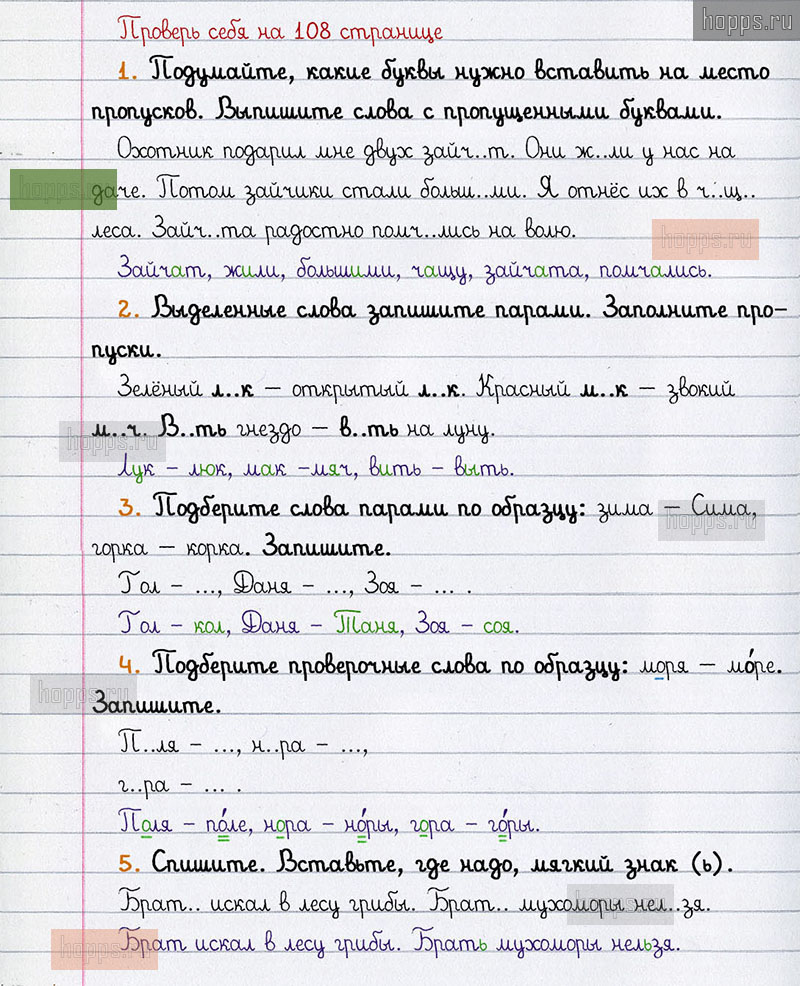 hopps.ru
Проверь себя на 108 странице
1. Подумайте, какие буквы нужно вставить на место
пропусков. Выпишите слова с пропущенными буквами.
Охотник подарил мне двух зайч..т. Они ж..ли у нас на
hopps.ru
даче. Потом зайчики стали больш..ми. Я отнёс их в ч..щ..
леса. Зайч..та радостно помч..лись на волю.
hopps.ru
Зайчат, жили, большими, чащу, зайчата, помчались.
2. Выделенные слова запишите парами. Заполните про-
пуски.
Зелёный л..к – открытый л..к. Красный м..к – звокий
м..ч. В..ть гнездо – в..ть на луну.
hopps.ru
Лук – люк, мак -мяч, вить – выть.
3. Подберите слова парами по образцу: зима – Сима,
hopps.ru
горка – корка. Запишите.
Гол - ..., Даня - ..., Зоя - ... .
Гол - кол, Даня - Таня, Зоя - соя.
4. Подберите проверочные слова по образцу: моря – мо́ре.
hopps.ru
Запишите.
П..ля - ..., н..ра - ...,
г..ра - ... .
Поля - по́ле, нора - но́ры, гора - го́ры.
5. Спишите. Вставьте, где надо, мягкий знак (ь).
Брат.. искал в лесу грибы. Брат.. мухоморы нел..зя.
hopps.ru
Брат искал в лесу грибы. Брать мухоморы нельзя.
hopps.ru